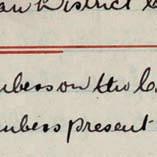 an District
mbers on the
mbers present